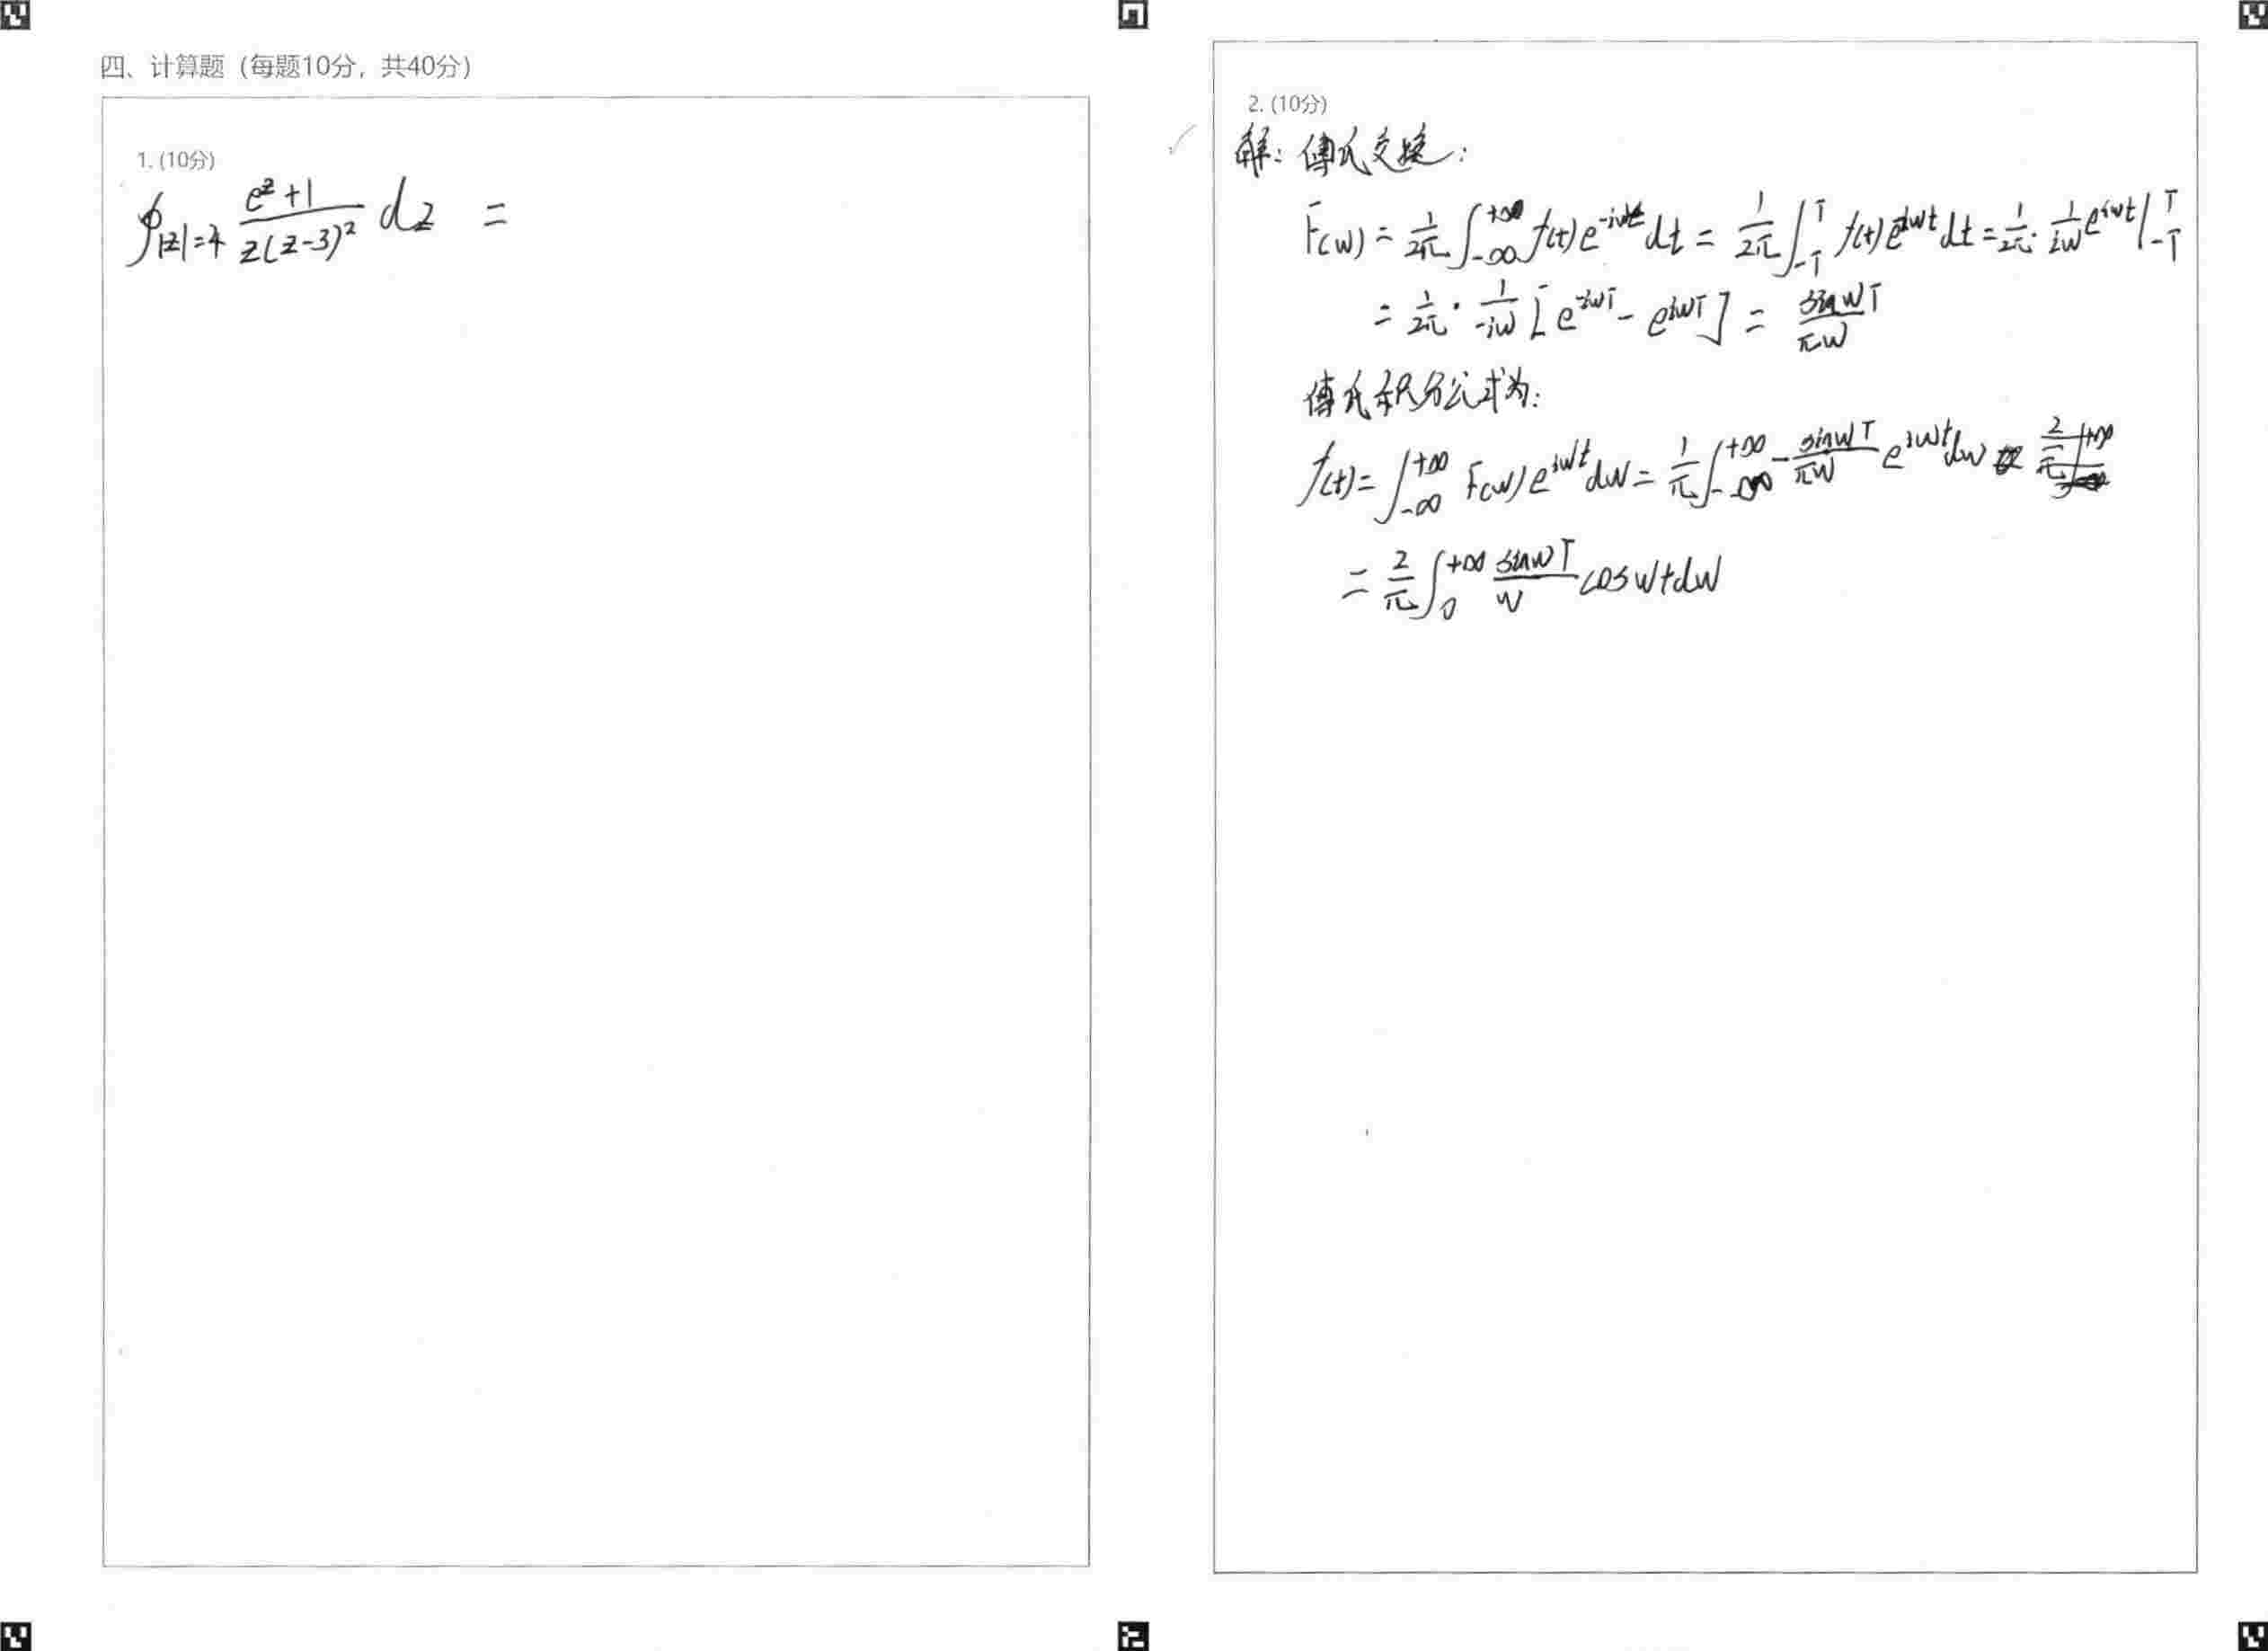 四、计算题（每题10分，共40分）
1. (10分)
∮|z|=4 (e^z+1)/(z(z-3)^2) dz =
2. (10分)
解：傅氏变换：
F(w) = 1/2π ∫_{-∞}^{+∞} f(t)e^{-iwt} dt = 1/2π ∫_{-T}^{T} f(t)e^{iwt} dt = 1/2π · 1/iw e^{iwt}|_{-T}^{T}
= 1/2π · 1/-iw [e^{-iwT} - e^{iwT}] = sinwT/πw
傅氏积分公式为：
f(t) = ∫_{-∞}^{+∞} F(w)e^{iwt}dw = 1/π ∫_{-∞}^{+∞} - sinwT/πw e^{iwt}dw
= 2/π ∫_0^{+∞} sinwT/w coswtdw